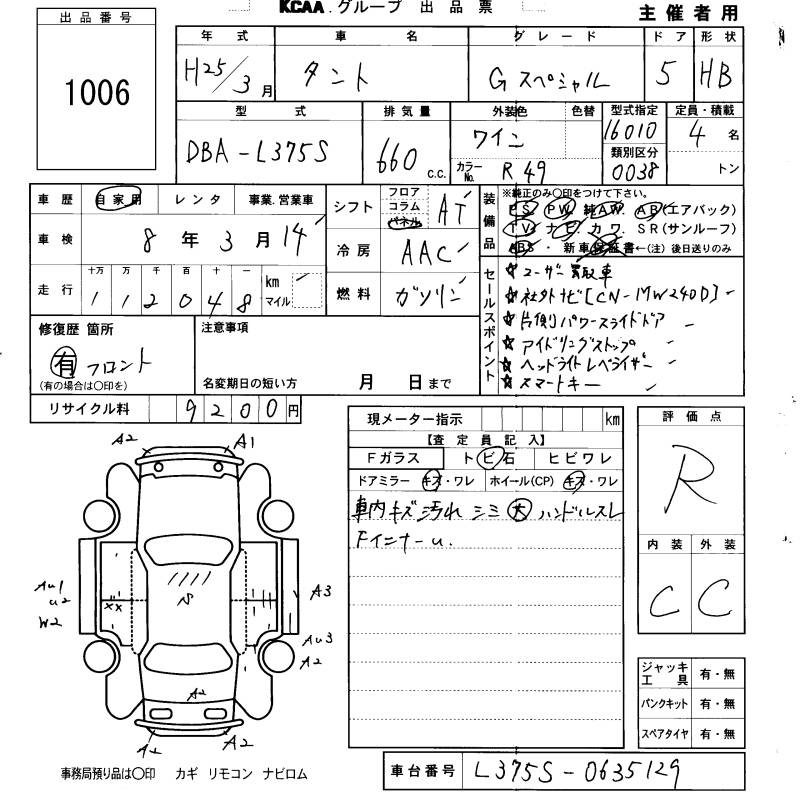 KCAA.グループ 出品票
主催者用
出品番号
1006
年式 車名 グレード ドア 形状
H25/3月 タント Gスペシャル 5 HB
型式 排気量 外装色 色替 型式指定 定員・積載
DBA-L375S 660 c.c. ワイン 16010 4名
カラーNo. R49 類別区分 0038 トン
車歴 自家用 レンタ 事業.営業車
シフト フロア コラム パネル AT
車検 8年3月14
冷房 AAC
走行 十万 万 千 百 十 一 km マイル
112048
燃料 ガソリン
装備品
※純正のみ○印をつけて下さい。
PS. PW. 純AW. AB(エアバック)
TV. ナビ. カワ. SR(サンルーフ)
ABS・新車保証書←(注)後日送りのみ
セールスポイント
☆ ユーザー買取車
☆ 社外ナビ[CN-MW240D]
☆ 片側パワースライドドア
☆ アイドリングストップ
☆ ヘッドライトレベライザー
☆ スマートキー
修復歴 箇所
有 フロント
(有の場合は○印を)
注意事項
名変期日の短い方 月 日まで
リサイクル料 9200円
現メーター指示 km
【査定員記入】
Fガラス トビ石 ヒビワレ
ドアミラー キズ・ワレ ホイール(CP) キズ・ワレ
車内キズ汚れ シミ大 ハンドルスレ
Fインナーu.
評価点
R
内装 外装
C C
A2 A1
Au1
u2
W2
xx
A3
Au3
A2
A2
A2 A2
ジャッキ工具 有・無
パンクキット 有・無
スペアタイヤ 有・無
事務局預り品は○印 カギ リモコン ナビロム
車台番号 L375S-0635129